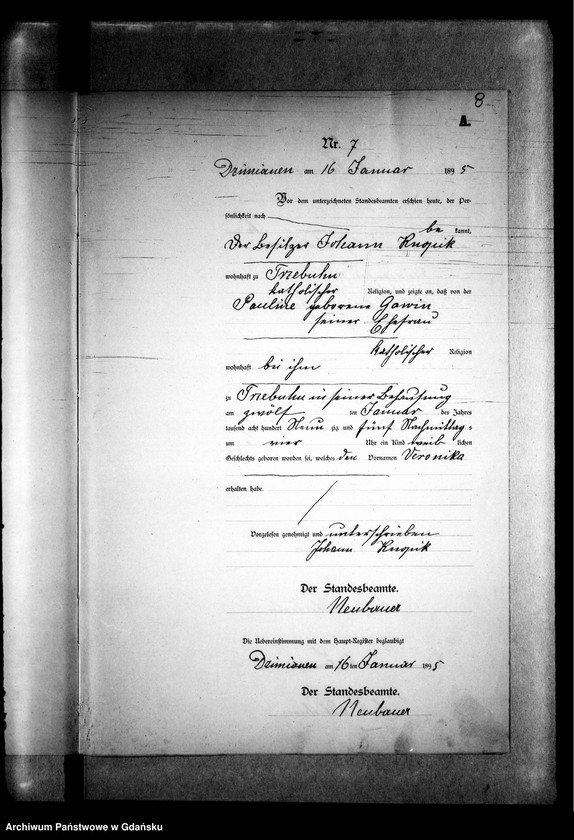 8
A.
Nr. 7
Dzimianen am 16 Januar 1895
Vor dem unterzeichneten Standesbeamten erschien heute, der Per-
sönlichkeit nach
be kannt,
Der Besitzer Johann Knopik
wohnhaft zu Trzebuhn
katholischer Religion, und zeigte an, daß von der
Pauline geborene Gawin
seiner Ehefrau
katholischer Religion
wohnhaft bei ihm
zu Trzebuhn in seiner Behausung
am zwölf ten Januar des Jahres
tausend acht hundert Neun zig und fünf Nachmittag s
um vier Uhr ein Kind weib lichen
Geschlechts geboren worden sei, welches den Vornamen Veronika
erhalten habe.
Vorgelesen genehmigt und unterschrieben
Johann Knopik
Der Standesbeamte.
Neubauer
Die Uebereinstimmung mit dem Haupt-Register beglaubigt
Dzimianen am 16 ten Januar 1895
Der Standesbeamte.
Neubauer
Archiwum Państwowe w Gdańsku